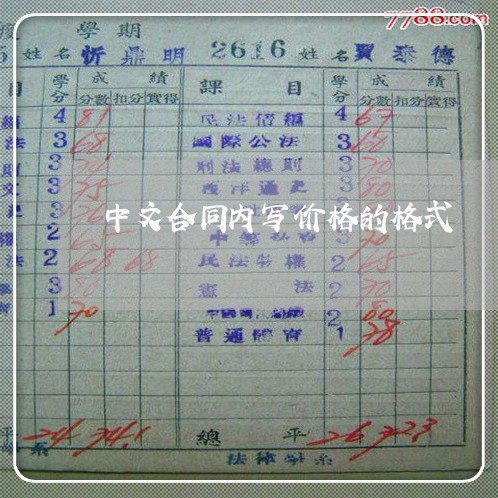 7788.com
學期
5 姓名 忻鼎明 2616 姓名 賈泰德
目 學分 成績 課目 學分 成績
分數 扣分 實得 分數 扣分 實得
4 81 民法債編 4 67
法 3 68 國際公法 3 60
3 刑法總則 3 70
3 75 西洋通史 3 80
中文合同内写价格的格式
2 65 70
法 2 68 68 民法物權 2 65
3 80 憲法 2 70
1 70 2 80
普通體育 1 78
平 24 74.1 總平 26 72.3
系 法律學系